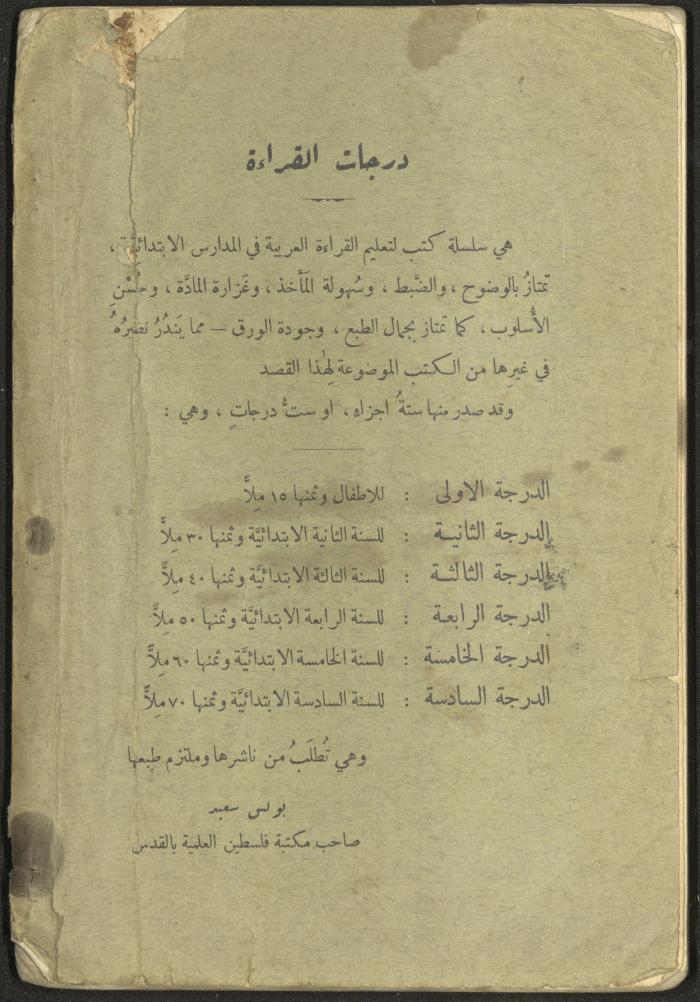 درجات القراءة
هي سلسلة كتب لتعليم القراءة العربية في المدارس الابتدائيَّة ،
تمتازُ بالوضوح ، والضَّبط ، وسُهولة المَأخذ ، وغَزارة المادَّة ، وحُسْنِ
الأُسلوب ، كما تمتاز بجمال الطبع ، وجودة الورق — مما يَندُرُ نظيرُهُ
في غيرِها من الكتب الموضوعة لِهٰذا القصد
وقد صدر منها ستةُ اجزاءِ ، او ستُّ درجاتٍ ، وهي :
الدرجة الاولى : للاطفال وثمنها ١٥ مِلاًّ
الدرجة الثانية : للسنة الثانية الابتدائيَّة وثمنها ٣٠ مِلاًّ
الدرجة الثالثة : للسنة الثالثة الابتدائيَّة وثمنها ٤٠ مِلاًّ
الدرجة الرابعة : للسنة الرابعة الابتدائيَّة وثمنها ٥٠ مِلاًّ
الدرجة الخامسة : للسنة الخامسة الابتدائيَّة وثمنها ٦٠ مِلاًّ
الدرجة السادسة : للسنة السادسة الابتدائيَّة وثمنها ٧٠ مِلاًّ
وهي تُطلَبُ من ناشرها وملتزم طبعها
بولس سعيد
صاحب مكتبة فلسطين العلمية بالقدس